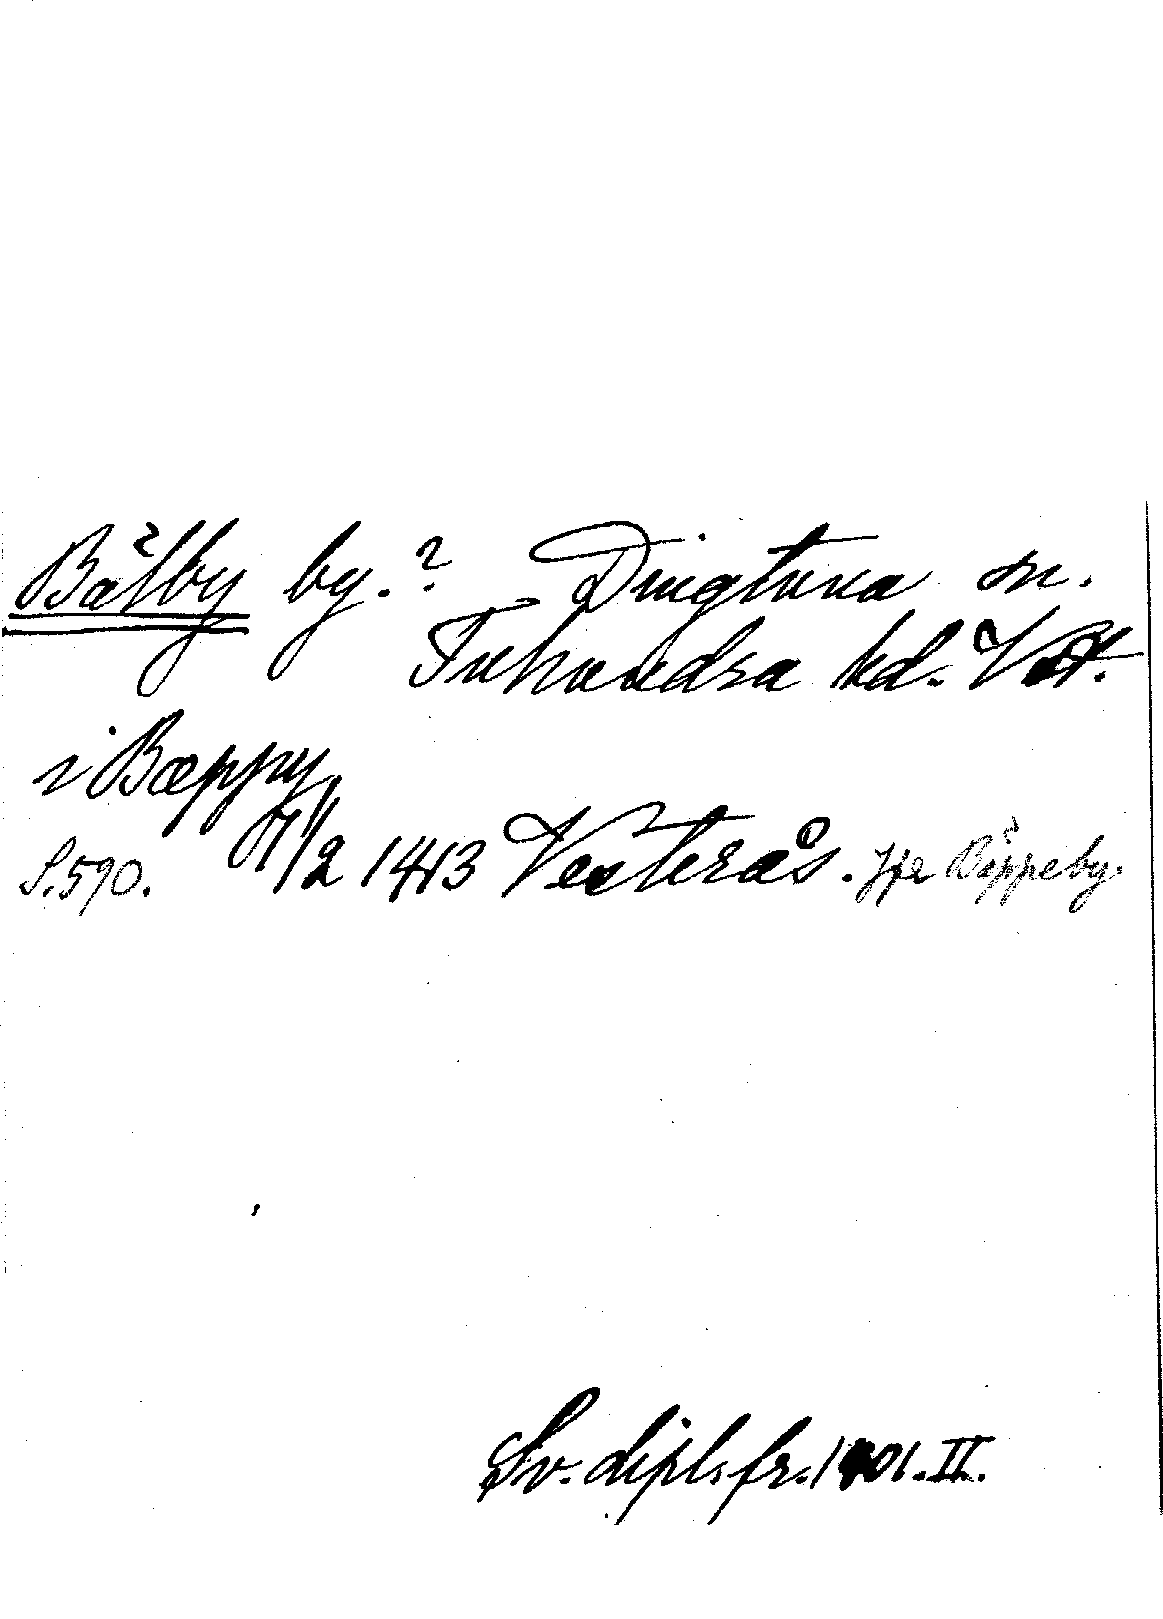 Bälby by.? Dingtuna sn.
Tuhundra hd. Vstl.
i Bæppy
S. 590. 17/2 1413 Vesterås. Jfr Bäppeby.
Sv. dipl. fr. 1401. II.